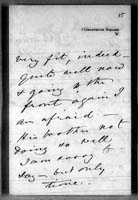 15
Grosvenor Square
very fit, indeed
quite well now
& going to the
front again I
am afraid —
His brother not
doing so well
I am sorry to
say — but only
time.